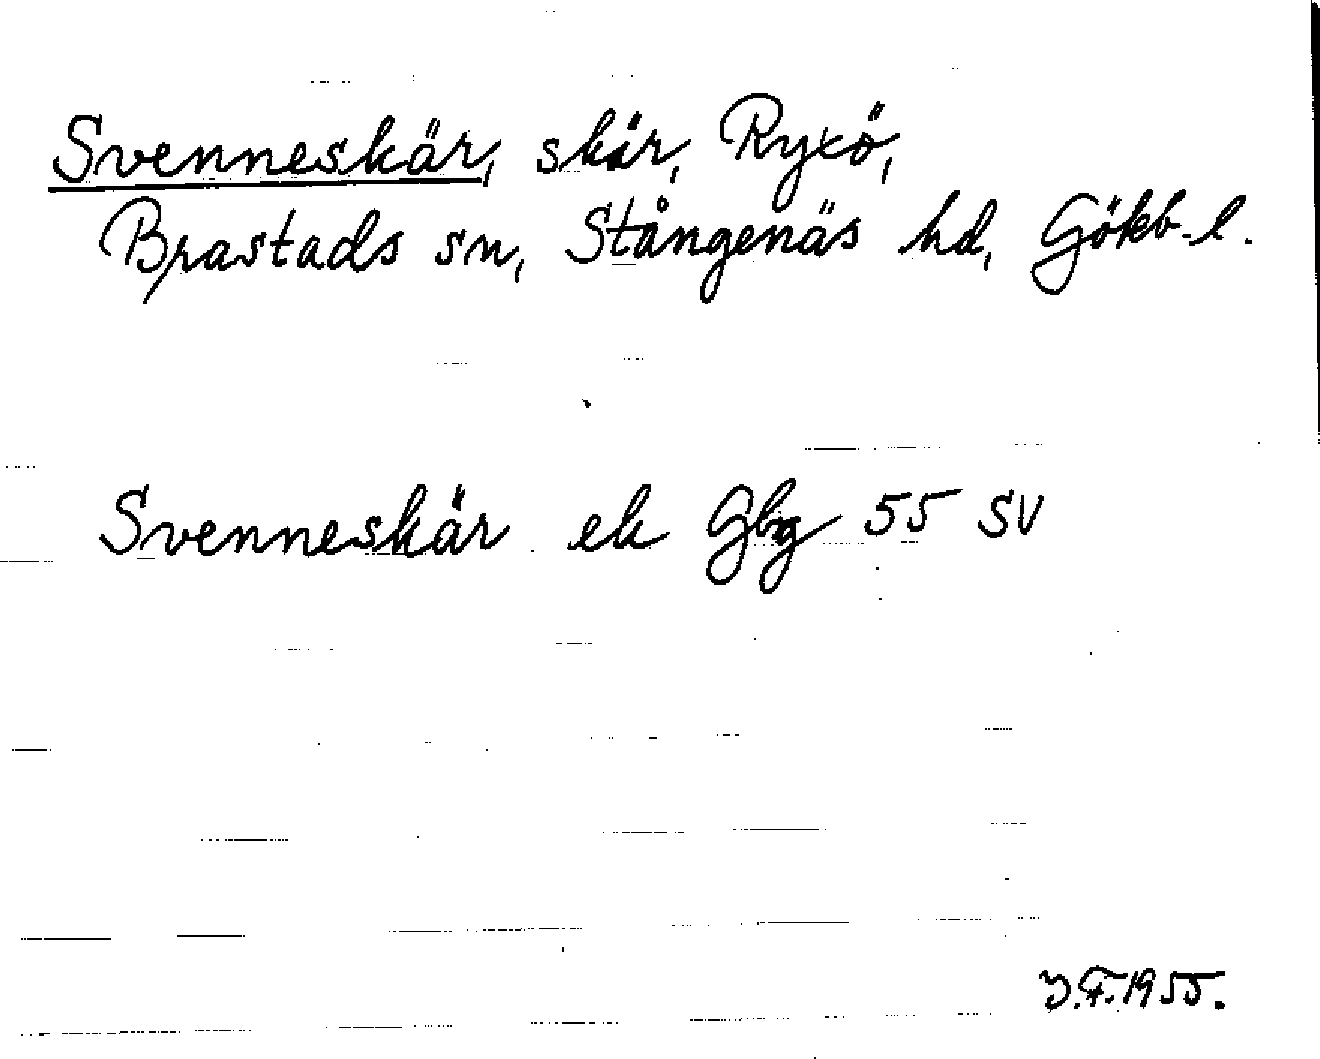 Svenneskär, skär, Ryxö,
Brastads sn, Stångenäs hd, Gökb-l.
Svenneskär ek Gbg 55 SV
Y.F. 1955.